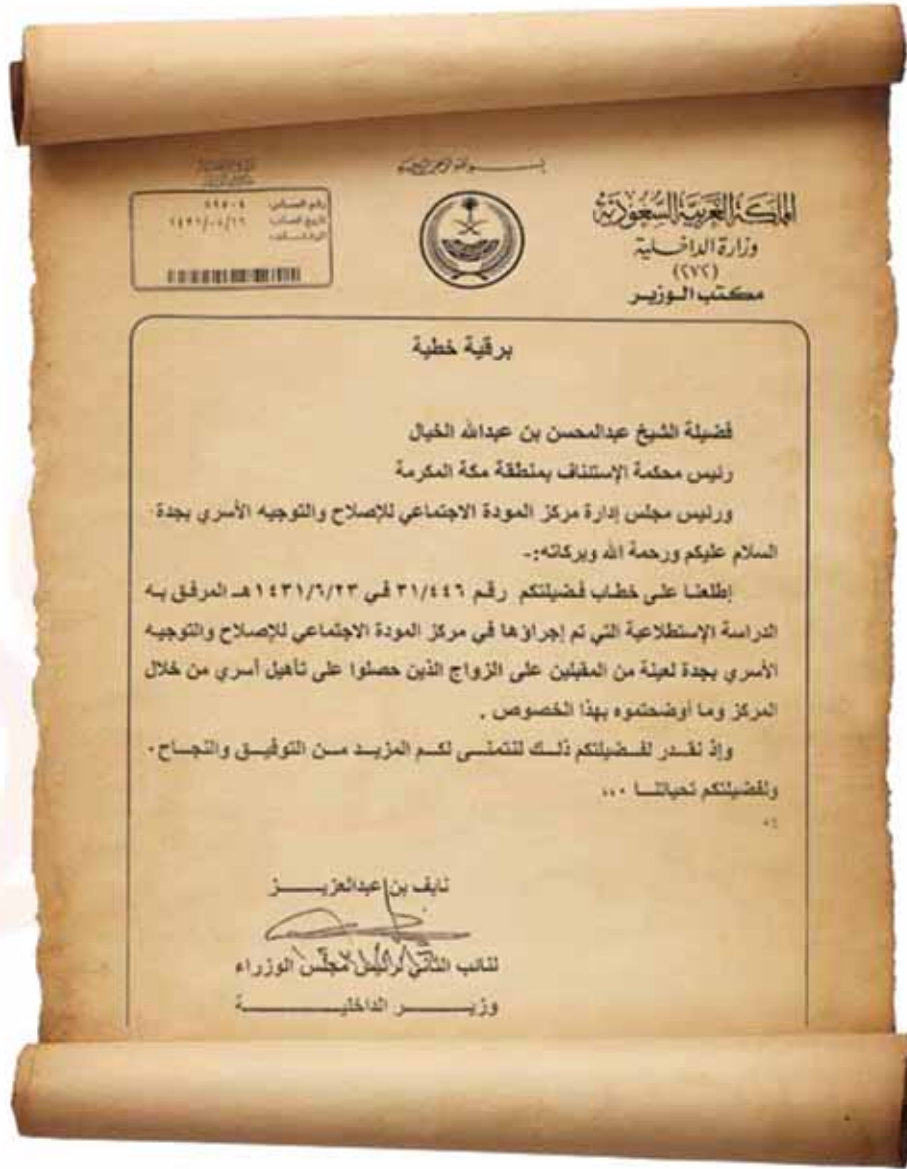 بسم الله الرحمن الرحيم
المملكة العربية السعودية
وزارة الداخلية
(٢٧٢)
مكتب الوزير
رقم الصادر:
برقية خطية
فضيلة الشيخ عبدالمحسن بن عبدالله الخيال
رئيس محكمة الإستئناف بمنطقة مكة المكرمة
ورئيس مجلس إدارة مركز المودة الاجتماعي للإصلاح والتوجيه الأسري بجدة
السلام عليكم ورحمة الله وبركاته:-
إطلعنا على خطاب فضيلتكم رقم ٣١/٤٤٦ في ١٤٣١/٦/٢٣هـ المرفق به
الدراسة الإستطلاعية التي تم إجراؤها في مركز المودة الاجتماعي للإصلاح والتوجيه
الأسري بجدة لعينة من المقبلين على الزواج الذين حصلوا على تأهيل أسري من خلال
المركز وما أوضحتموه بهذا الخصوص .
وإذ نقدر لفضيلتكم ذلك لنتمنى لكم المزيد من التوفيق والنجاح .
ولفضيلتكم تحياتنا ...
نايف بن عبدالعزيز
النائب الثاني لرئيس مجلس الوزراء
وزير الداخلية